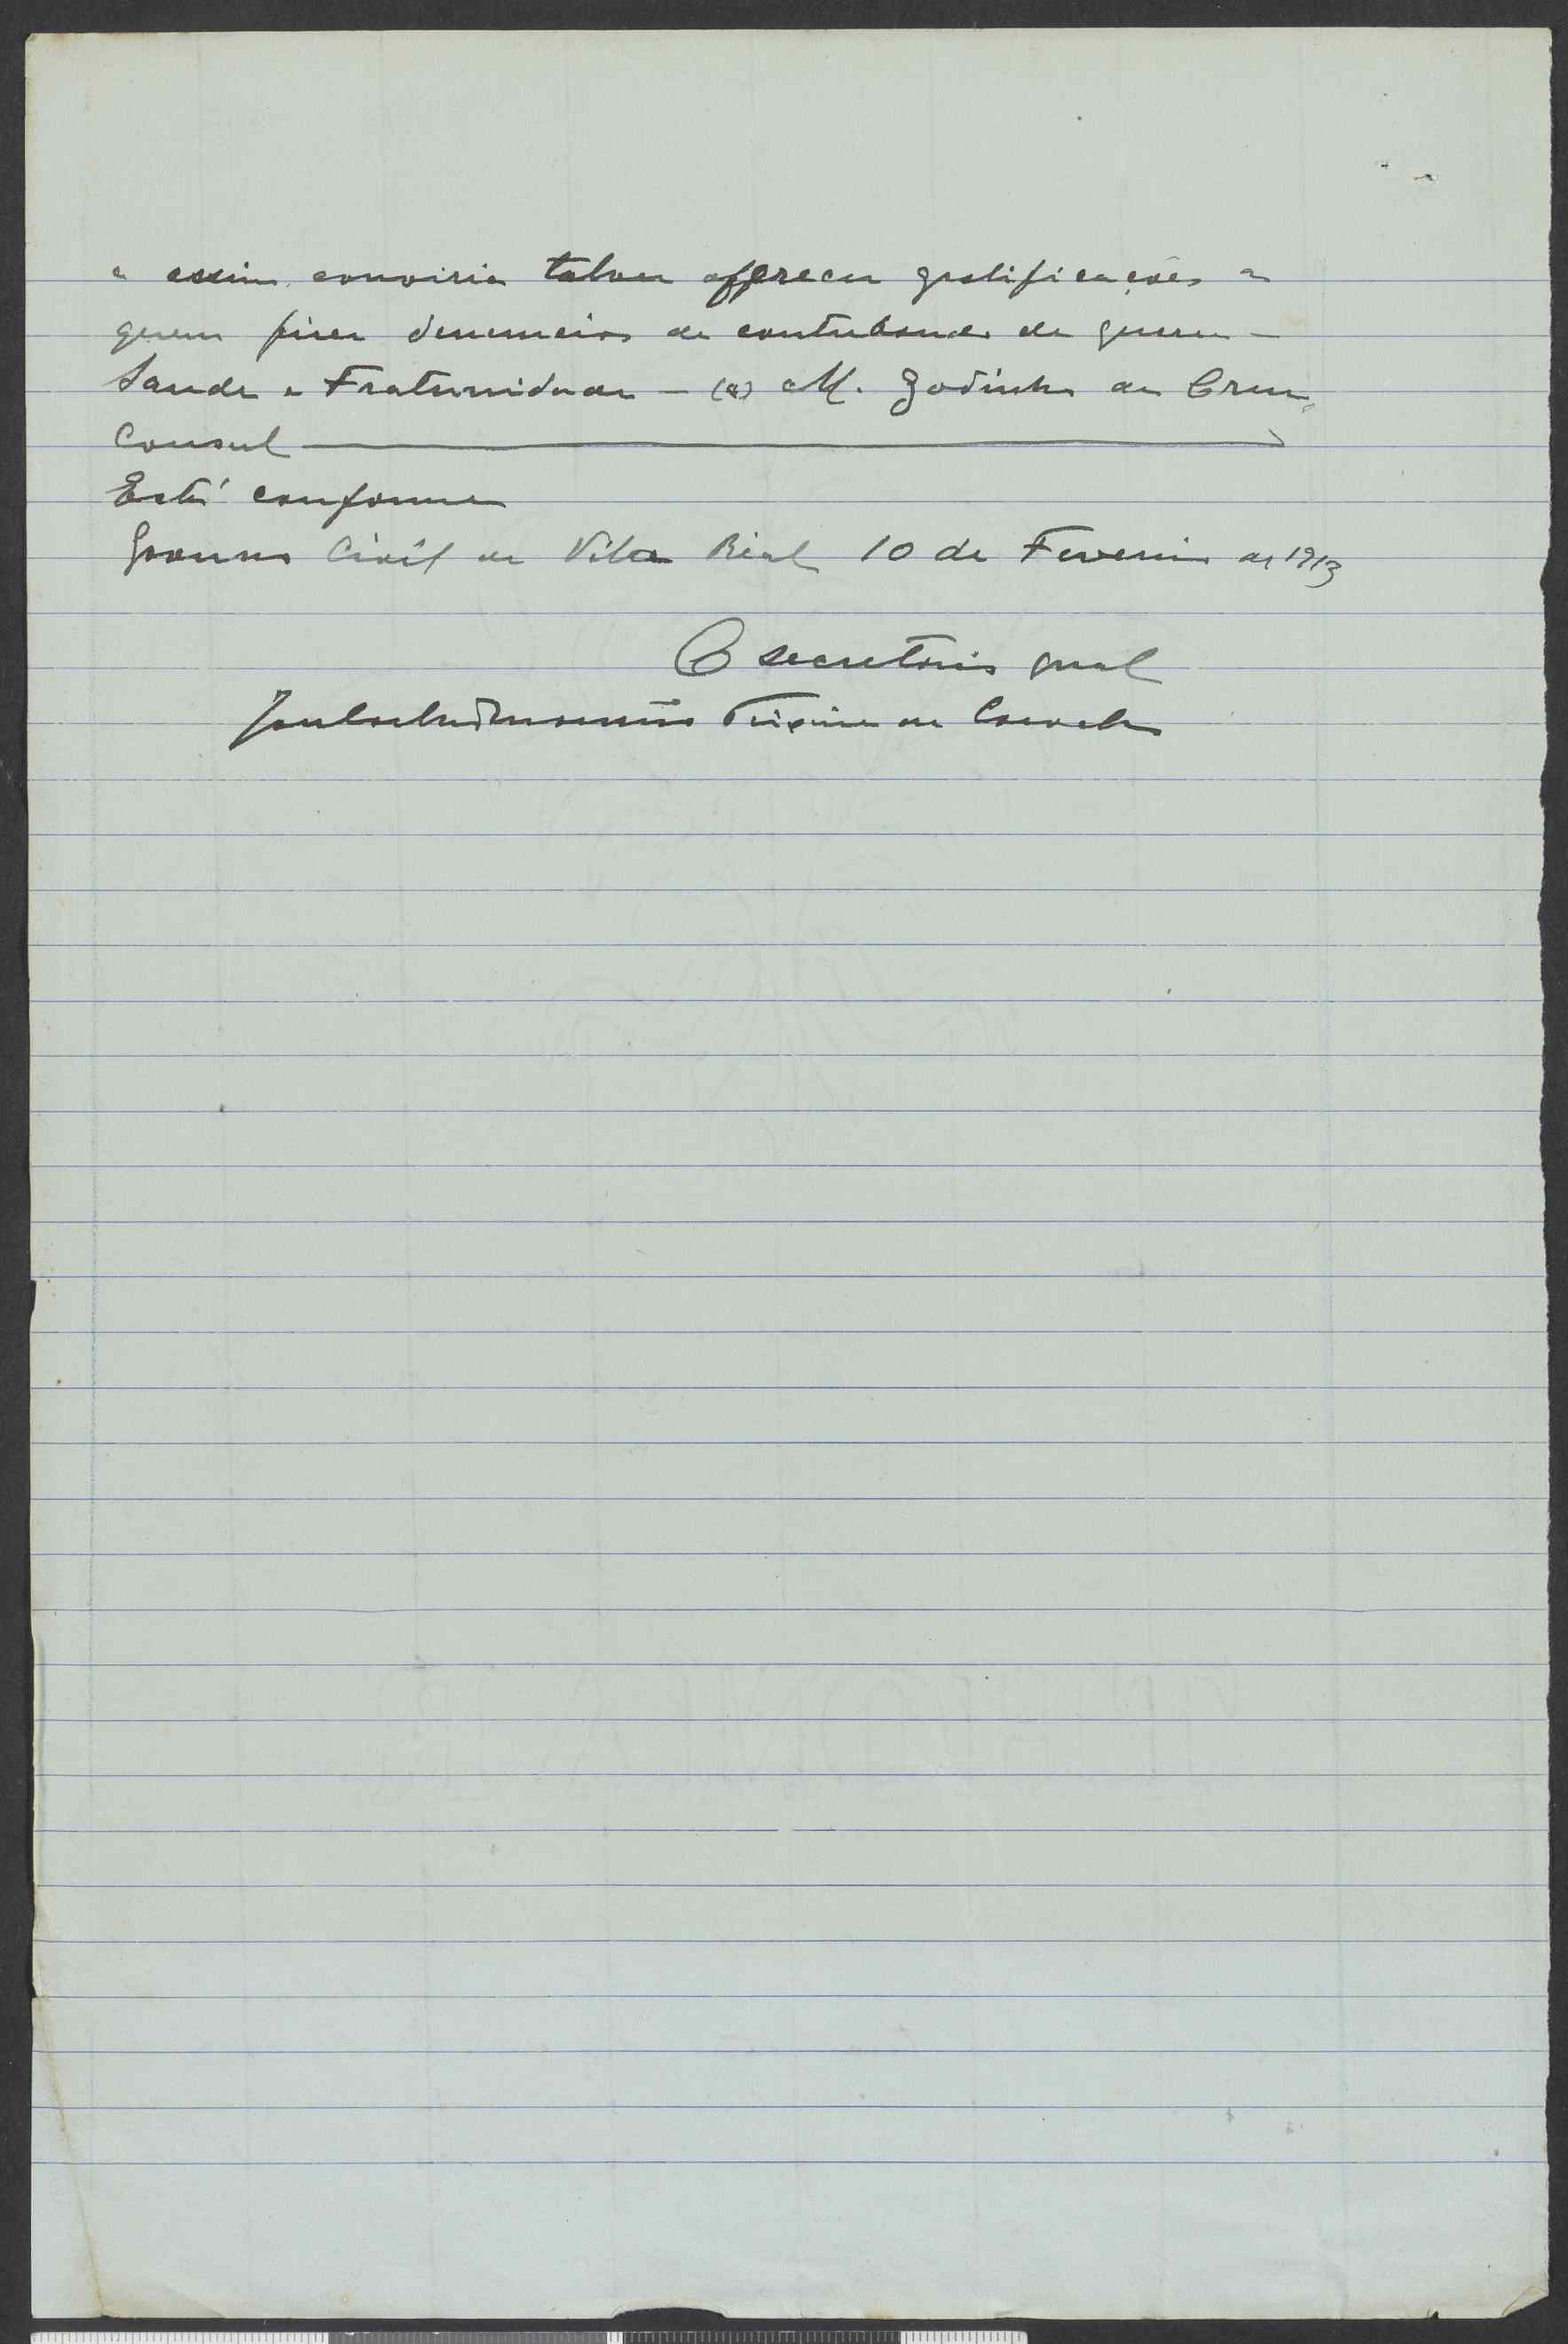 e assim conviria talvez offerecer gratificações a
quem fizer denuncias de contrabando de guerra -
Saude e Fraternidade - (a) M. Godinho da Cruz,
Consul
Está conforme
Governo Civil de Vila Real 10 de Fevereiro de 1913
O secretario geral
Teixeira de Carvalho